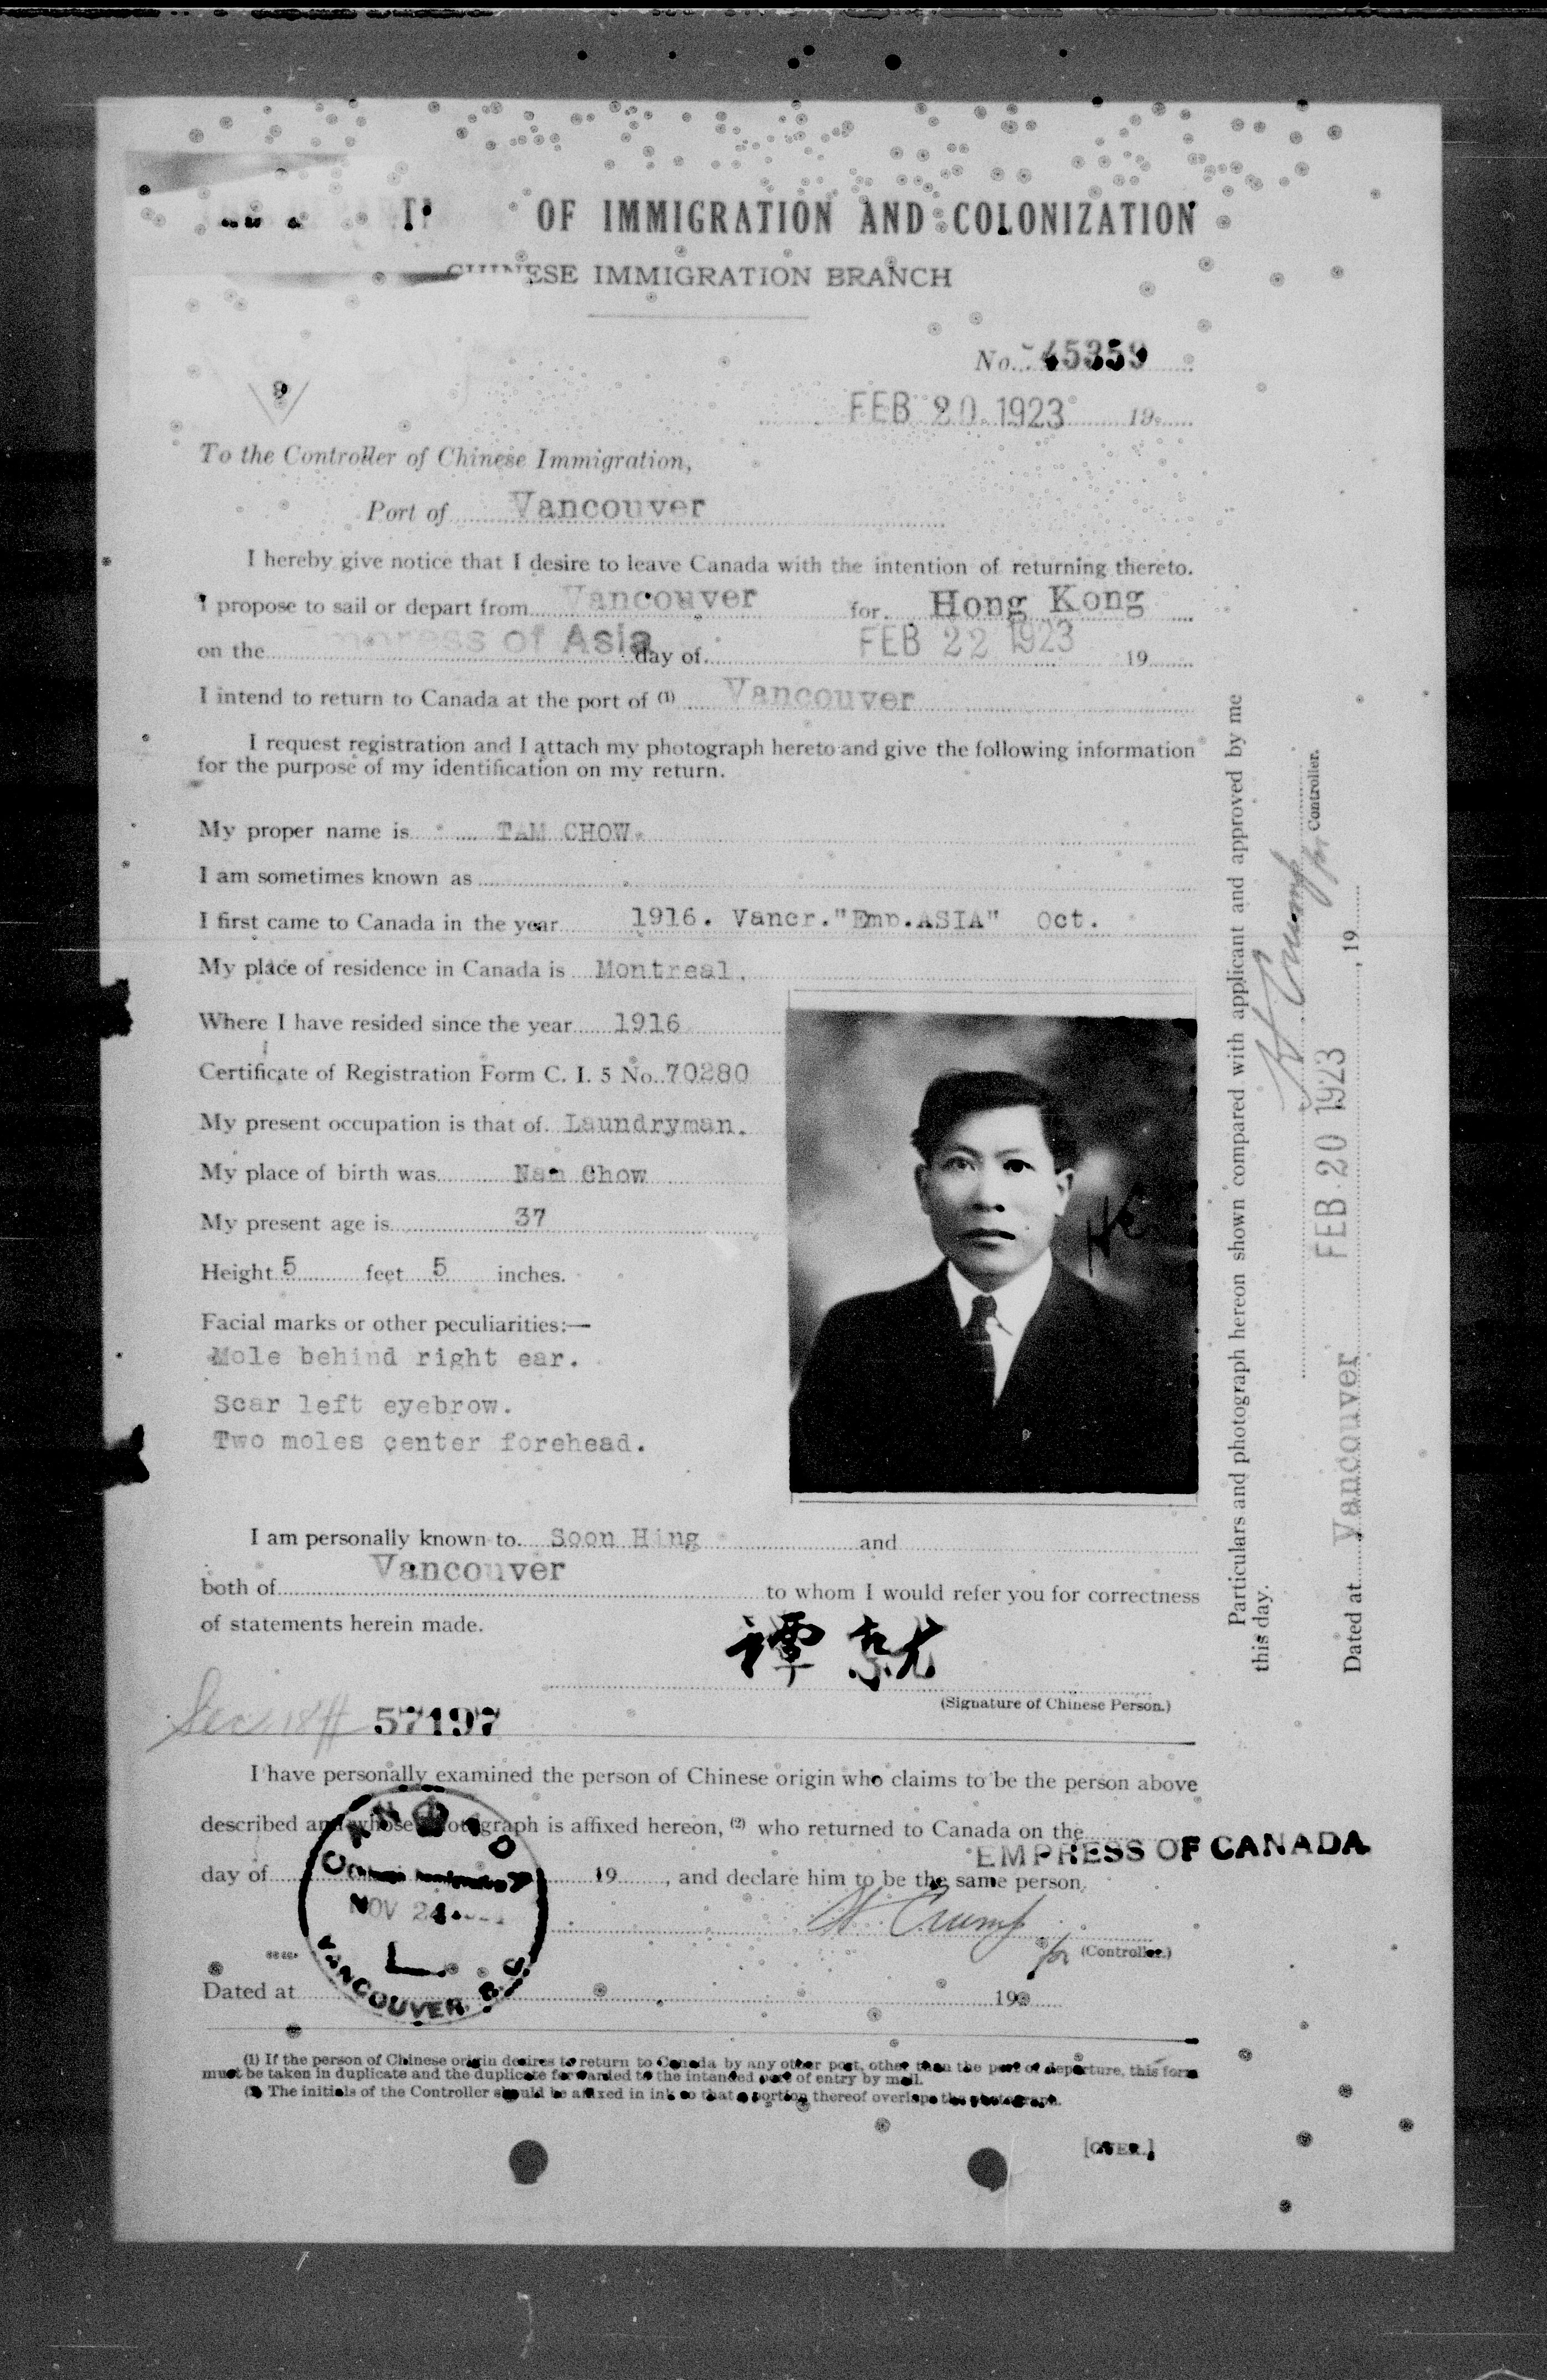 OF IMMIGRATION AND COLONIZATION
CHINESE IMMIGRATION BRANCH
No. 45359
9
FEB 20 1923 19
To the Controller of Chinese Immigration,
Port of Vancouver
I hereby give notice that I desire to leave Canada with the intention of returning thereto.
I propose to sail or depart from Vancouver for Hong Kong
on the Empress of Asia day of FEB 22 1923 19
I intend to return to Canada at the port of (1) Vancouver
I request registration and I attach my photograph hereto and give the following information
for the purpose of my identification on my return.
My proper name is TAM CHOW.
I am sometimes known as
I first came to Canada in the year 1916. Vancr. "Emp. ASIA" Oct.
My place of residence in Canada is Montreal.
Where I have resided since the year 1916
Certificate of Registration Form C. I. 5 No. 70280
My present occupation is that of Laundryman.
My place of birth was Nam Chow
My present age is 37
Height 5 feet 5 inches.
Facial marks or other peculiarities:—
Mole behind right ear.
Scar left eyebrow.
Two moles center forehead.
I am personally known to Soon Hing and
both of Vancouver to whom I would refer you for correctness
of statements herein made.
譚就
(Signature of Chinese Person.)
57197
I have personally examined the person of Chinese origin who claims to be the person above
described and whose photograph is affixed hereon, (2) who returned to Canada on the
EMPRESS OF CANADA
day of 19 , and declare him to be the same person.
NOV 24
H Crump
for (Controller.)
VANCOUVER B.C.
Dated at 192
(1) If the person of Chinese origin desires to return to Canada by any other port, other than the port of departure, this form
must be taken in duplicate and the duplicate forwarded to the intended port of entry by mail.
(2) The initials of the Controller should be affixed in ink so that a portion thereof overlaps the photograph.
[OVER.]
Particulars and photograph hereon shown compared with applicant and approved by me
this day.
H Crump for Controller.
Dated at Vancouver FEB 20 1923 , 19